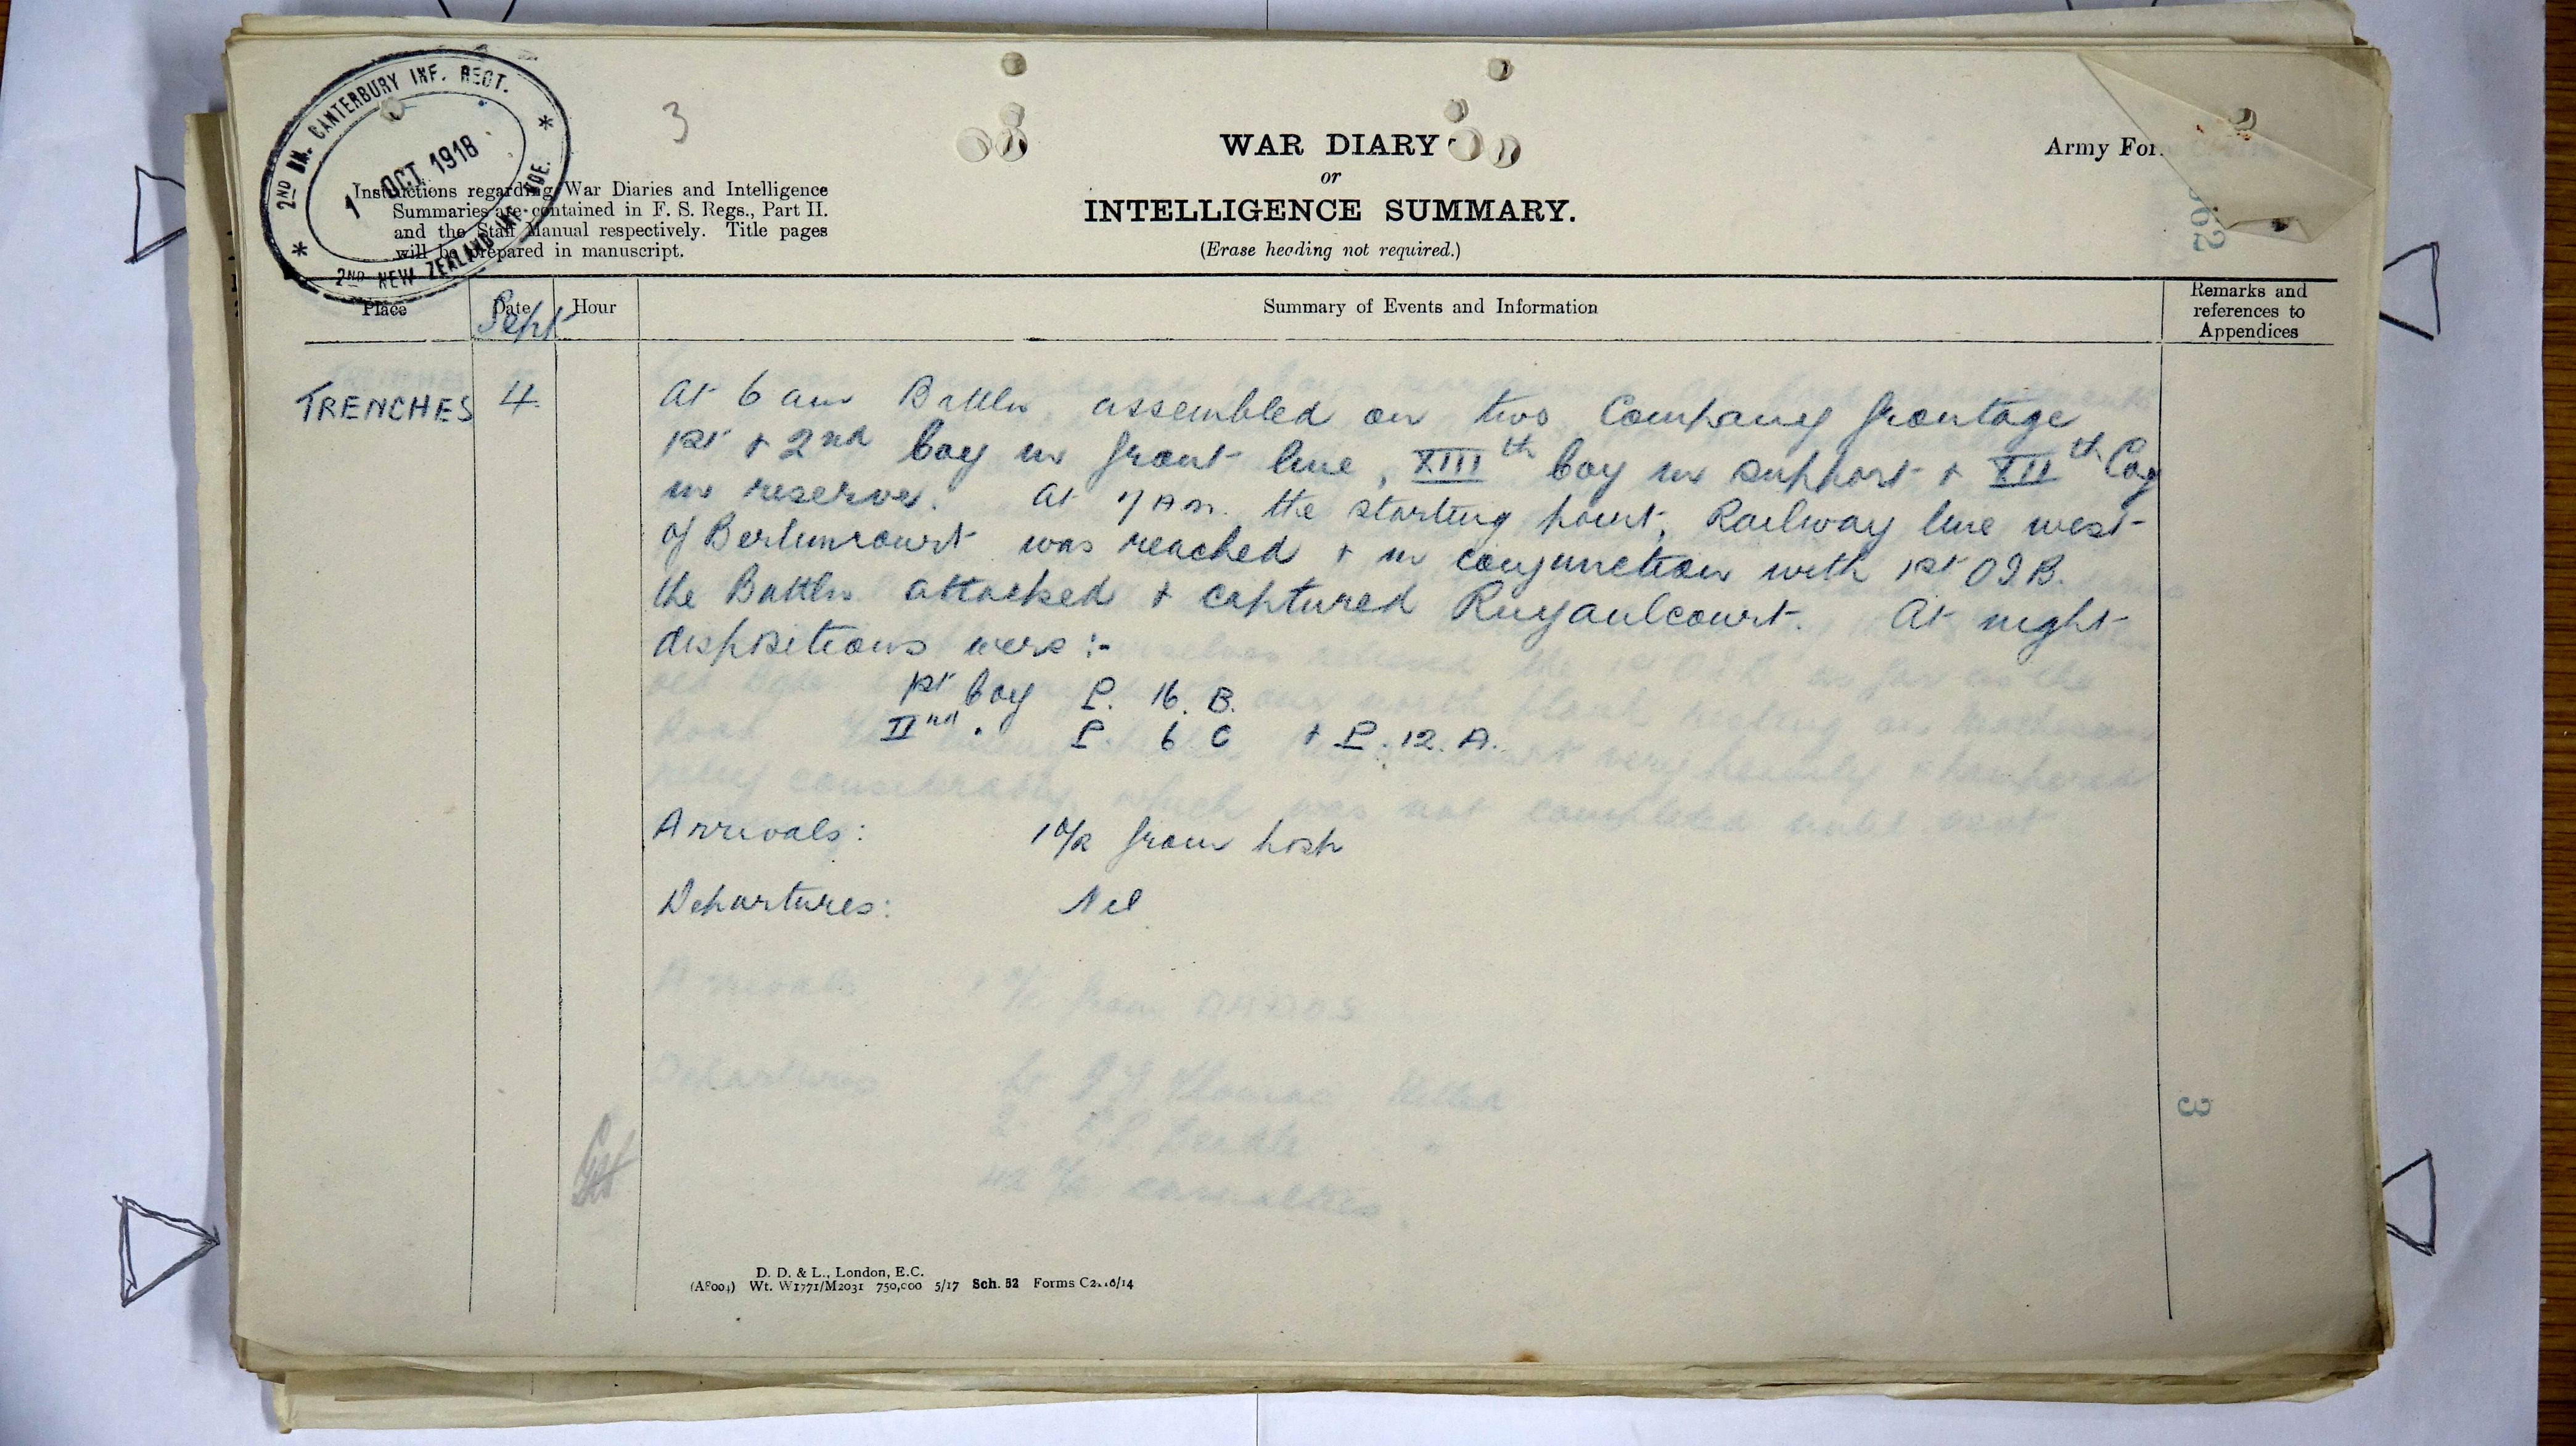 2ND BN. CANTERBURY INF. REGT.
1 OCT 1918
2ND NEW ZEALAND INF. BDE.
3
Instructions regarding War Diaries and Intelligence
Summaries are contained in F. S. Regs., Part II.
and the Staff Manual respectively. Title pages
will be prepared in manuscript.
WAR DIARY
or
INTELLIGENCE SUMMARY.
(Erase heading not required.)
Army For
Place Date Hour Summary of Events and Information Remarks and references to Appendices
Sept
TRENCHES 4. At 6 am Battln. assembled on two Company frontage
1st + 2nd Coy in front line, XIIIth Coy in support + XIIth Coy
in reserve. At 7 AM. the starting point, Railway line west
of Bertincourt was reached + in conjunction with 1st O I B.
the Battln. attacked + captured Ruyaulcourt. At night
dispositions were :-
1st Coy P. 16. B.
IInd " P. 6 C + P. 12. A.
Arrivals: 1 O/R from hosp
Departures: Nil
Arrivals 1 O/R from
Departures Lt Thomas Killed
2 "
O/R casualties.
D. D. & L., London, E.C.
Wt. W1771/M2031 750,000 5/17 Sch. 52 Forms
3